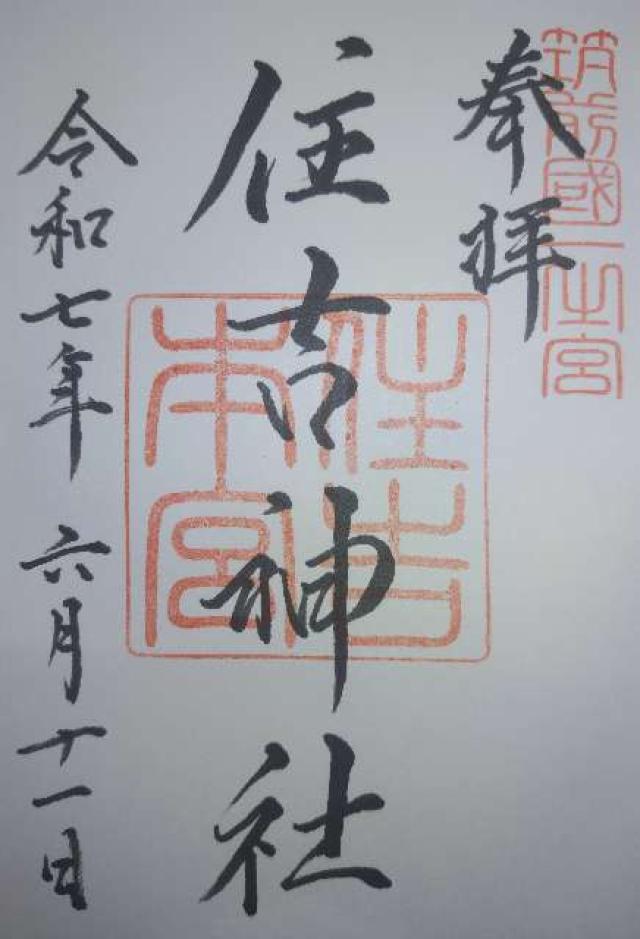 筑前國一之宮
奉拝
住吉神社
住吉本宮
令和七年 六月十一日